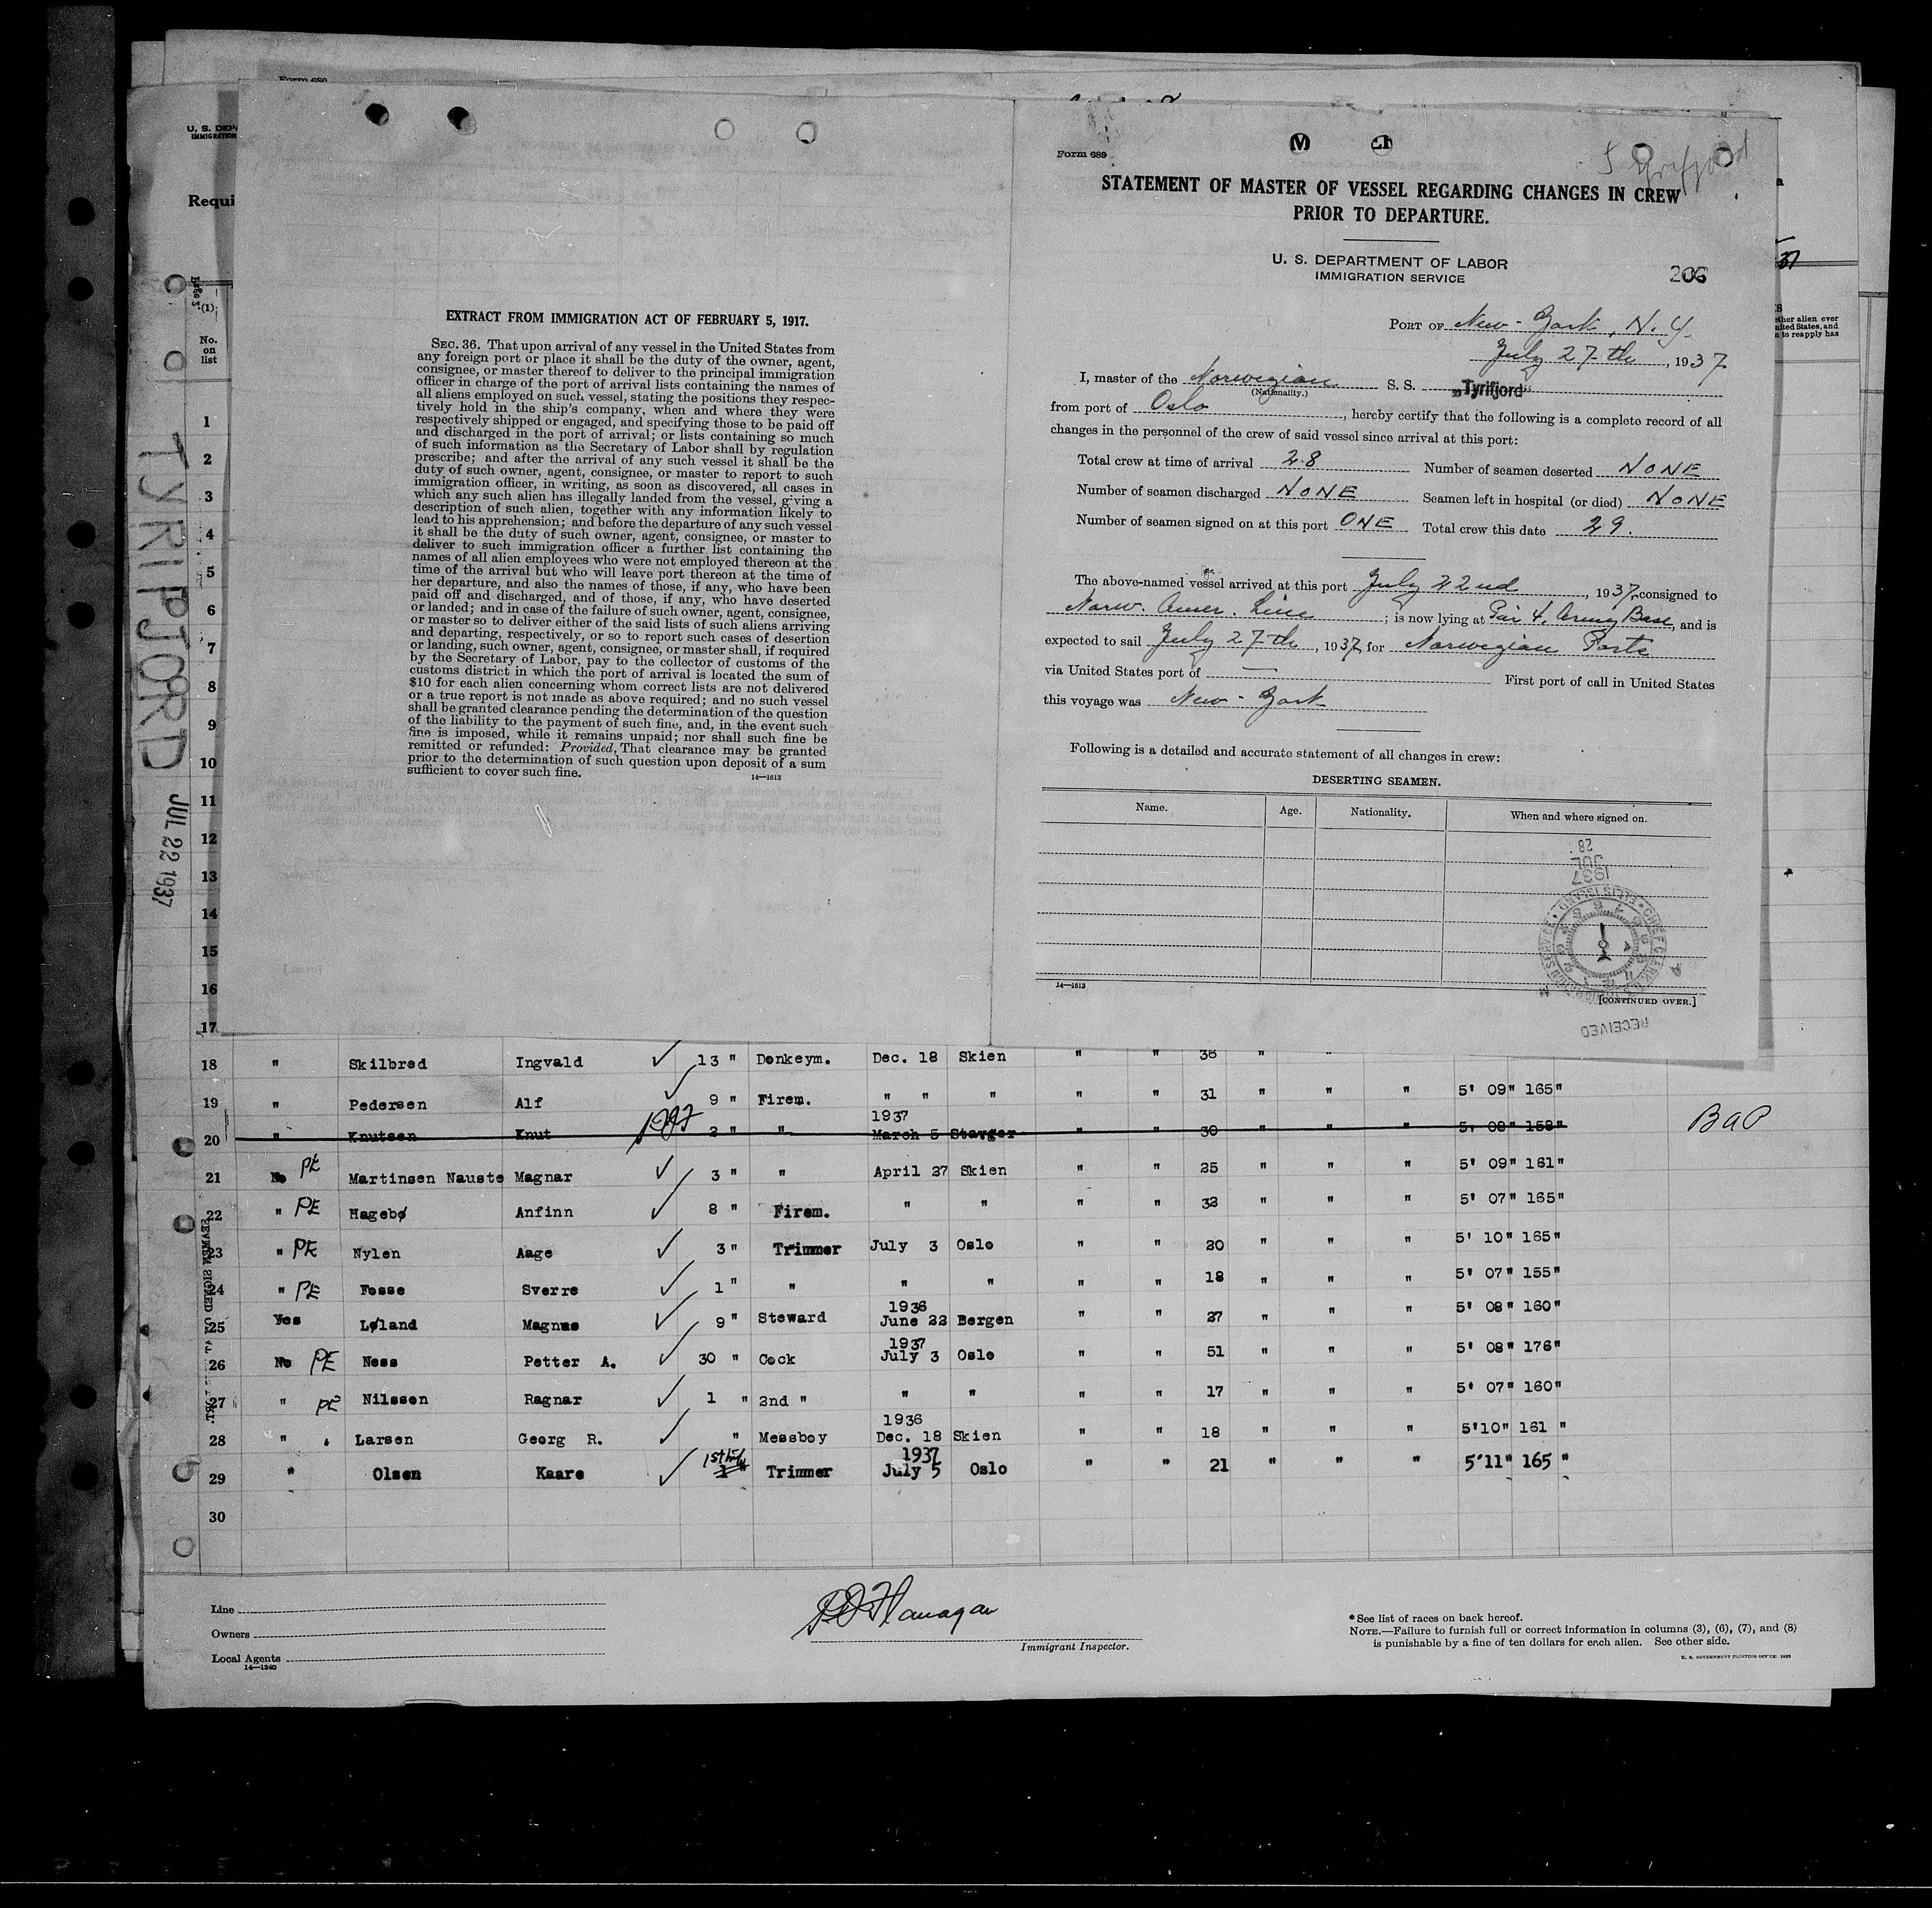 Form 689
U. S. DEPA
IMMIGRATION
Requi
(1)
No.
on
list
1
2
3
4
5
6
7
8
9
10
11
12
13
14
15
16
17
TYRIFJORD JUL 22 1937
EXTRACT FROM IMMIGRATION ACT OF FEBRUARY 5, 1917.
SEC. 36. That upon arrival of any vessel in the United States from
any foreign port or place it shall be the duty of the owner, agent,
consignee, or master thereof to deliver to the principal immigration
officer in charge of the port of arrival lists containing the names of
all aliens employed on such vessel, stating the positions they respec-
tively hold in the ship's company, when and where they were
respectively shipped or engaged, and specifying those to be paid off
and discharged in the port of arrival; or lists containing so much
of such information as the Secretary of Labor shall by regulation
prescribe; and after the arrival of any such vessel it shall be the
duty of such owner, agent, consignee, or master to report to such
immigration officer, in writing, as soon as discovered, all cases in
which any such alien has illegally landed from the vessel, giving a
description of such alien, together with any information likely to
lead to his apprehension; and before the departure of any such vessel
it shall be the duty of such owner, agent, consignee, or master to
deliver to such immigration officer a further list containing the
names of all alien employees who were not employed thereon at the
time of the arrival but who will leave port thereon at the time of
her departure, and also the names of those, if any, who have been
paid off and discharged, and of those, if any, who have deserted
or landed; and in case of the failure of such owner, agent, consignee,
or master so to deliver either of the said lists of such aliens arriving
and departing, respectively, or so to report such cases of desertion
or landing, such owner, agent, consignee, or master shall, if required
by the Secretary of Labor, pay to the collector of customs of the
customs district in which the port of arrival is located the sum of
$10 for each alien concerning whom correct lists are not delivered
or a true report is not made as above required; and no such vessel
shall be granted clearance pending the determination of the question
of the liability to the payment of such fine, and, in the event such
fine is imposed, while it remains unpaid; nor shall such fine be
remitted or refunded: Provided, That clearance may be granted
prior to the determination of such question upon deposit of a sum
sufficient to cover such fine.
14—1613
Form 689
Tyrifjord
STATEMENT OF MASTER OF VESSEL REGARDING CHANGES IN CREW
PRIOR TO DEPARTURE.
U. S. DEPARTMENT OF LABOR
IMMIGRATION SERVICE
206
PORT OF New-York, N. Y.
July 27-th, 1937
I, master of the Norwegian S. S. "Tyrifjord"
(Nationality.)
from port of Oslo, hereby certify that the following is a complete record of all
changes in the personnel of the crew of said vessel since arrival at this port:
Total crew at time of arrival 28 Number of seamen deserted NONE
Number of seamen discharged NONE Seamen left in hospital (or died) NONE
Number of seamen signed on at this port ONE Total crew this date 29.
The above-named vessel arrived at this port July 22nd, 1937, consigned to
Norw. Amer. Line; is now lying at Pier 4, Army Base, and is
expected to sail July 27-th, 1937, for Norwegian Ports
via United States port of — First port of call in United States
this voyage was New-York
Following is a detailed and accurate statement of all changes in crew:
DESERTING SEAMEN.
Name. Age. Nationality. When and where signed on.
28
JUL
1937
CHIEF CLERK ELLIS ISLAND
RECEIVED
14—1613
[CONTINUED OVER.]
37
ether alien ever
nited States, and
n to reapply has
18 " Skilbred Ingvald ✓ 13 " Donkeym. Dec. 18 Skien " " 36 " "
19 " Pedersen Alf ✓ 9 " Firem. " " " " " 31 " " " 5' 09" 165"
1937
20 " Knutsen Knut 2 " " March 5 Stavger " " 30 " " " 5' 08" 158" BaP
21 No PE Martinsen Nauste Magnar ✓ 3 " " April 27 Skien " " 25 " " " 5' 09" 161"
22 " PE Hagebø Anfinn ✓ 8 " Firem. " " " " 32 " " " 5' 07" 165"
23 " PE Nylen Aage ✓ 3 " Trimmer July 3 Oslo " " 20 " " " 5' 10" 165"
24 " PE Fosse Sverre ✓ 1 " " " " " " 18 " " " 5' 07" 155"
1936
25 Yes Løland Magnus ✓ 9 " Steward June 22 Bergen " " 27 " " " 5' 08" 160"
1937
26 No PE Ness Petter A. ✓ 30 " Cook July 3 Oslo " " 51 " " " 5' 08" 176"
27 " PE Nilssen Ragnar ✓ 1 " 2nd " " " " " 17 " " " 5' 07" 160"
1936
28 " Larsen Georg R. ✓ " Messboy Dec. 18 Skien " " 18 " " " 5'10" 161 "
1937
29 " Olsen Kaare ✓ 1st trip Trimmer July 5 Oslo " " 21 " " " 5'11" 165 "
30
SEAMEN SIGNED ON
Line
Owners
Local Agents
14—1240
Flanagan
Immigrant Inspector.
*See list of races on back hereof.
NOTE.—Failure to furnish full or correct information in columns (3), (6), (7), and (8)
is punishable by a fine of ten dollars for each alien. See other side.
U. S. GOVERNMENT PRINTING OFFICE: